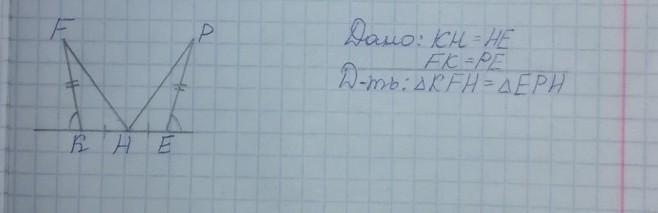 F P
K H E
Дано: KH = HE
FK = PE
Д-ть: △KFH = △EPH